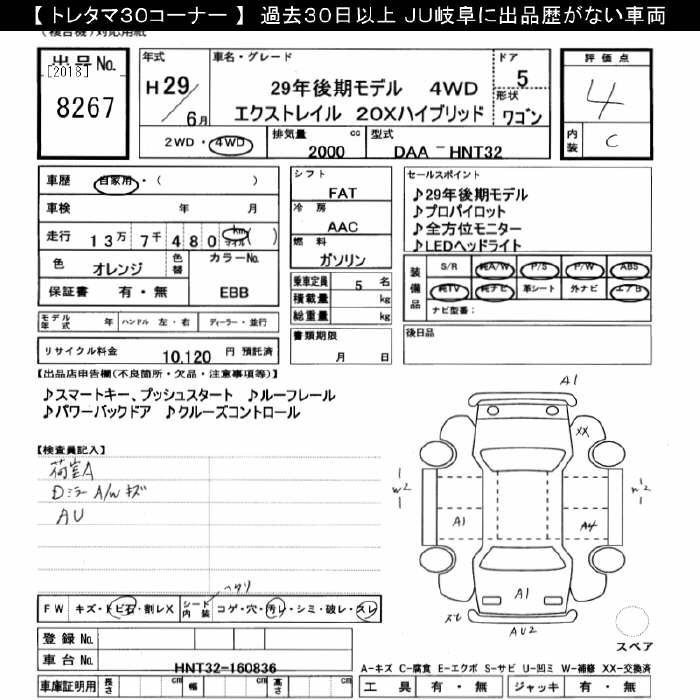 【 トレタマ30コーナー 】 過去30日以上 JU岐阜に出品歴がない車両
(複合機)対応用紙
出品 No.
[2018]
8267
年式 車名・グレード ドア
H 29 / 6月
29年後期モデル 4WD 5
エクストレイル 20Xハイブリッド
形状 ワゴン
2WD・4WD 排気量 2000 cc 型式 DAA－HNT32
評価点
4
内装 C
車歴 自家用・( )
車検 年 月
走行 13万7千480 km マイル ( )
色 オレンジ 色替 カラーNo. EBB
保証書 有・無
モデル年式 年 ハンドル 左・右 ディーラー・並行
リサイクル料金 10,120 円 預託済
シフト FAT
冷房 AAC
燃料 ガソリン
乗車定員 5 名
積載量 kg
総重量 kg
書類期限
月 日
セールスポイント
♪29年後期モデル
♪プロパイロット
♪全方位モニター
♪LEDヘッドライト
装備品 S/R 純A/W P/S P/W ABS
純TV 純ナビ 革シート 外ナビ エアB
ナビ型番:
後日品
【出品店申告欄(不良箇所・欠品・注意事項等)】
♪スマートキー、プッシュスタート ♪ルーフレール
♪パワーバックドア ♪クルーズコントロール
【検査員記入】
荷室A
Dミラー A/W キズ
AU
A1
XX
W2
A1
A4
W2
A1
ズレ
AU2
スペア
FW キズ・トビ石・割レX シート内装 コゲ・穴・汚レ・シミ・破レ・スレ
登録 No.
車台 No. HNT32-160836
車庫証明用 長さ cm 幅 cm 高さ cm
A－キズ C－腐食 E－エクボ S－サビ U－凹ミ W－補修 XX－交換済
工具 有・無 ジャッキ 有・無